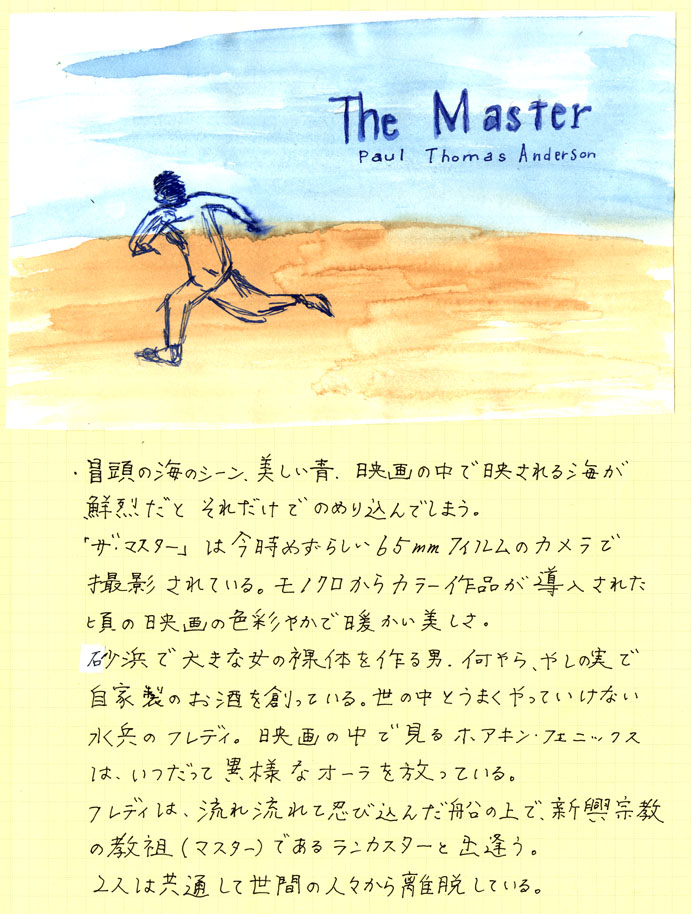 The Master
Paul Thomas Anderson
・冒頭の海のシーン、美しい青、映画の中で映される海が
鮮烈だと それだけで のめり込んでしまう。
「ザ・マスター」は今時めずらしい65mmフィルムのカメラで
撮影されている。モノクロからカラー作品が導入された
頃の映画の色彩やかで暖かい美しさ。
砂浜で大きな女の裸体を作る男、何やら、やしの実で
自家製のお酒を創っている。世の中とうまくやっていけない
水兵のフレディ。映画の中で見るホアキン・フェニックス
は、いつだって異様なオーラを放っている。
フレディは、流れ流れて忍び込んだ船の上で、新興宗教
の教祖(マスター)であるランカスターと出逢う。
2人は共通して世間の人々から離脱している。